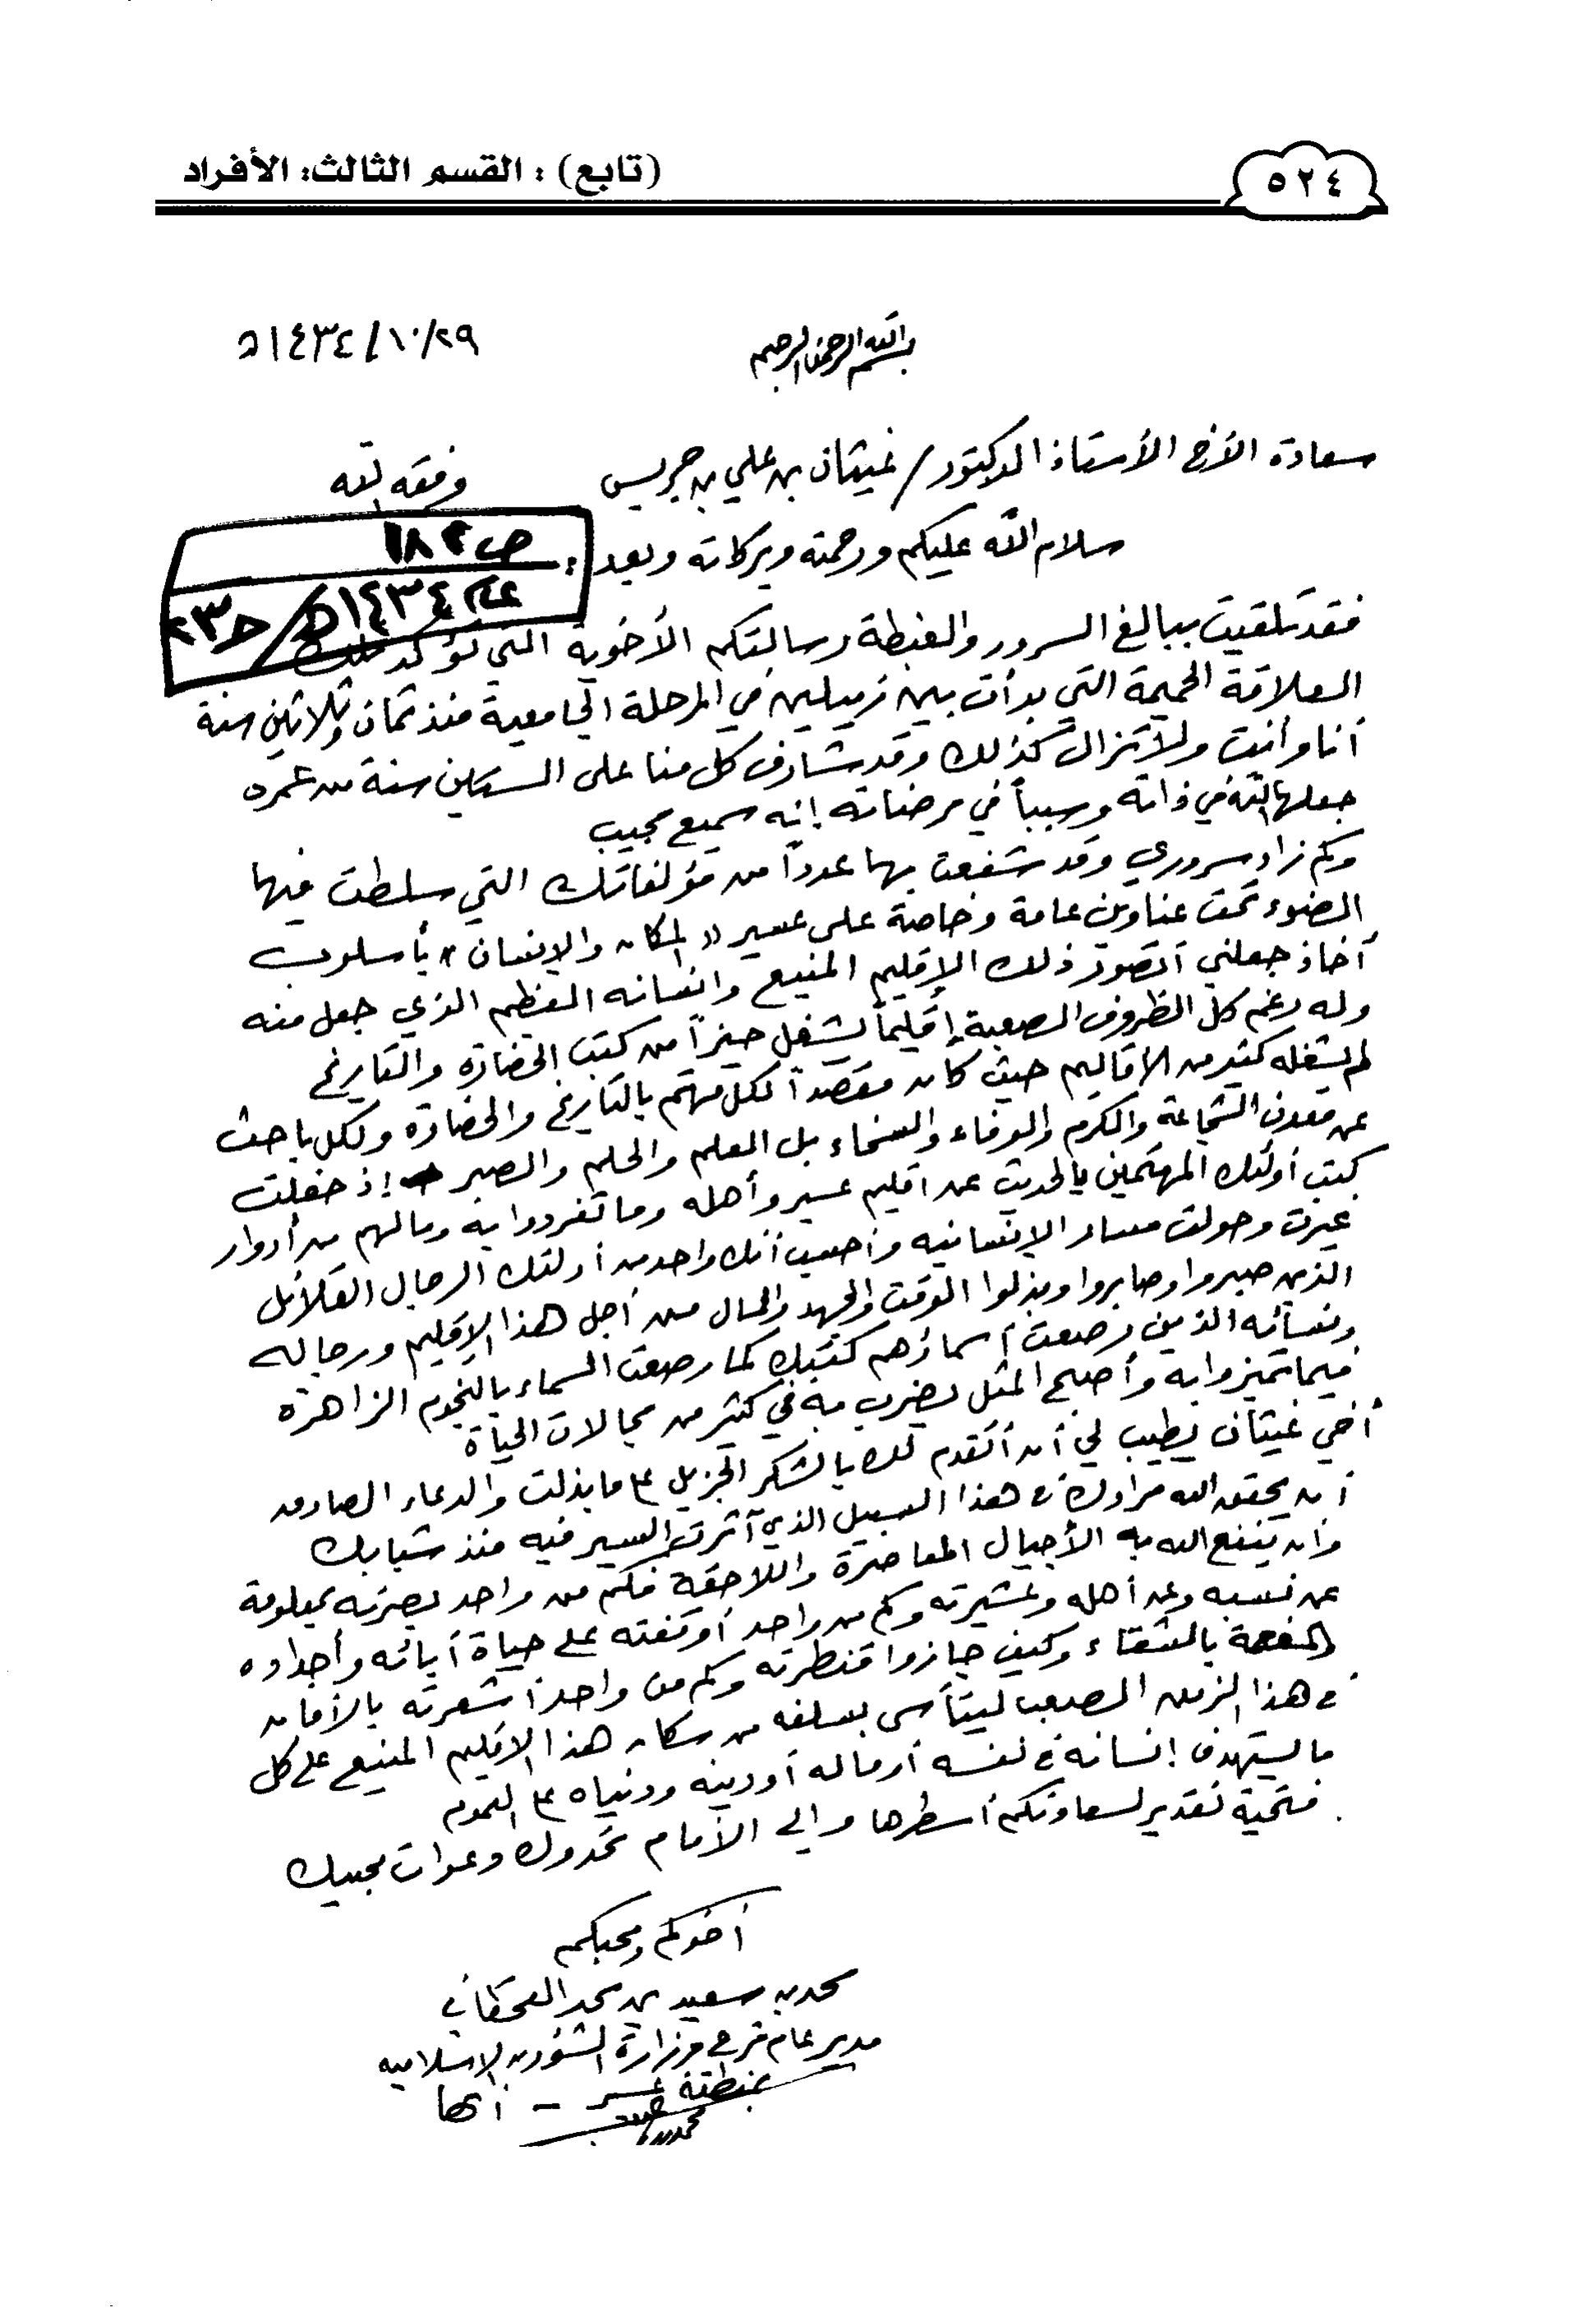 ٥٢٤
(تابع) : القسم الثالث: الأفراد
بسم الله الرحمن الرحيم
٢٩/١٠/١٤٣٤ه
سعادة الأخ الأستاذ الدكتور/ غيثان بن علي بن جريس
وفقه الله
سلام الله عليكم ورحمته وبركاته وبعد :
ص ١٨٢
عام ١٤٣٤ه/ ح٢٣
فقد تلقيت ببالغ السرور والغبطة رسالتكم الأخوية التي تؤكد تلك
العلاقة الحميمة التي بدأت بين زميلين في المرحلة الجامعية منذ ثمان وثلاثين سنة
أنا وأنت ولا تزال كذلك وقد شارف كل منا على الستين سنة من عمره
جعلها الله في ذاته وسبباً في مرضاته إنه سميع مجيب
وكم زاد سروري وقد شفعت بها عدداً من مؤلفاتك التي سلطت فيها
الضوء تحت عناوين عامة وخاصة على عسير «المكان والإنسان» بأسلوب
أخاذ جعلني أتصور ذلك الإقليم المنيع وإنسانه العظيم الذي جعل منه
وله رغم كل الظروف الصعبة إقليماً يشغل حيزاً من كتب الحضارة والتاريخ
لم يشغله كثير من الأقاليم حيث كان مقصداً لكل مهتم بالتاريخ والحضارة ولكل باحث
عن معدن الشجاعة والكرم والوفاء والسخاء بل العلم والحلم والصبر إذ حفلت
كتب أولئك المهتمين بالحديث عن اقليم عسير وأهله وما تفردوا به ومالهم من أدوار
غيرت وحولت مسار الإنسانيه وأحسب أنك واحد من أولئك الرجال القلائل
الذين صبروا وصابروا وبذلوا الوقت والجهد والمال من أجل هذا الإقليم ورجاله
ونسائه الذين رصعت أسماؤهم كتبك كما رصعت السماء بالنجوم الزاهرة
فيما تميزوا به وأصبح المثل يضرب به في كثير من مجالات الحياة
أخي غيثان يطيب لي أن أتقدم لك بالشكر الجزيل على ما بذلت والدعاء الصادق
أن يحقق الله مرادك في هذا السبيل الذي آثرت السير فيه منذ شبابك
وأن ينفع الله به الأجيال المعاصرة واللاحقة فكم من واحد بصرته بمعلومة
عن نسبه وعن أهله وعشيرته وكم من واحد أوقفته على حياة آبائه وأجداده
بالشقاء وكيف جازوا قنطرته وكم من واحد أشعرته بالأمان
في هذا الزمن الصعب ليتأسى بسلفه من سكان هذا الإقليم المنيع على كل
ما يستهدف إنسانه في نفسه أو ماله أو دينه ودنياه على العموم
فتحية تقدير لسعادتكم أسطرها وإلى الأمام تحدوك دعوات محبيك
أخوكم ومحبكم
محمد بن سعيد بن محمد القحطاني
مدير عام فرع وزارة الشؤون الإسلاميه
بمنطقة عسير - أبها